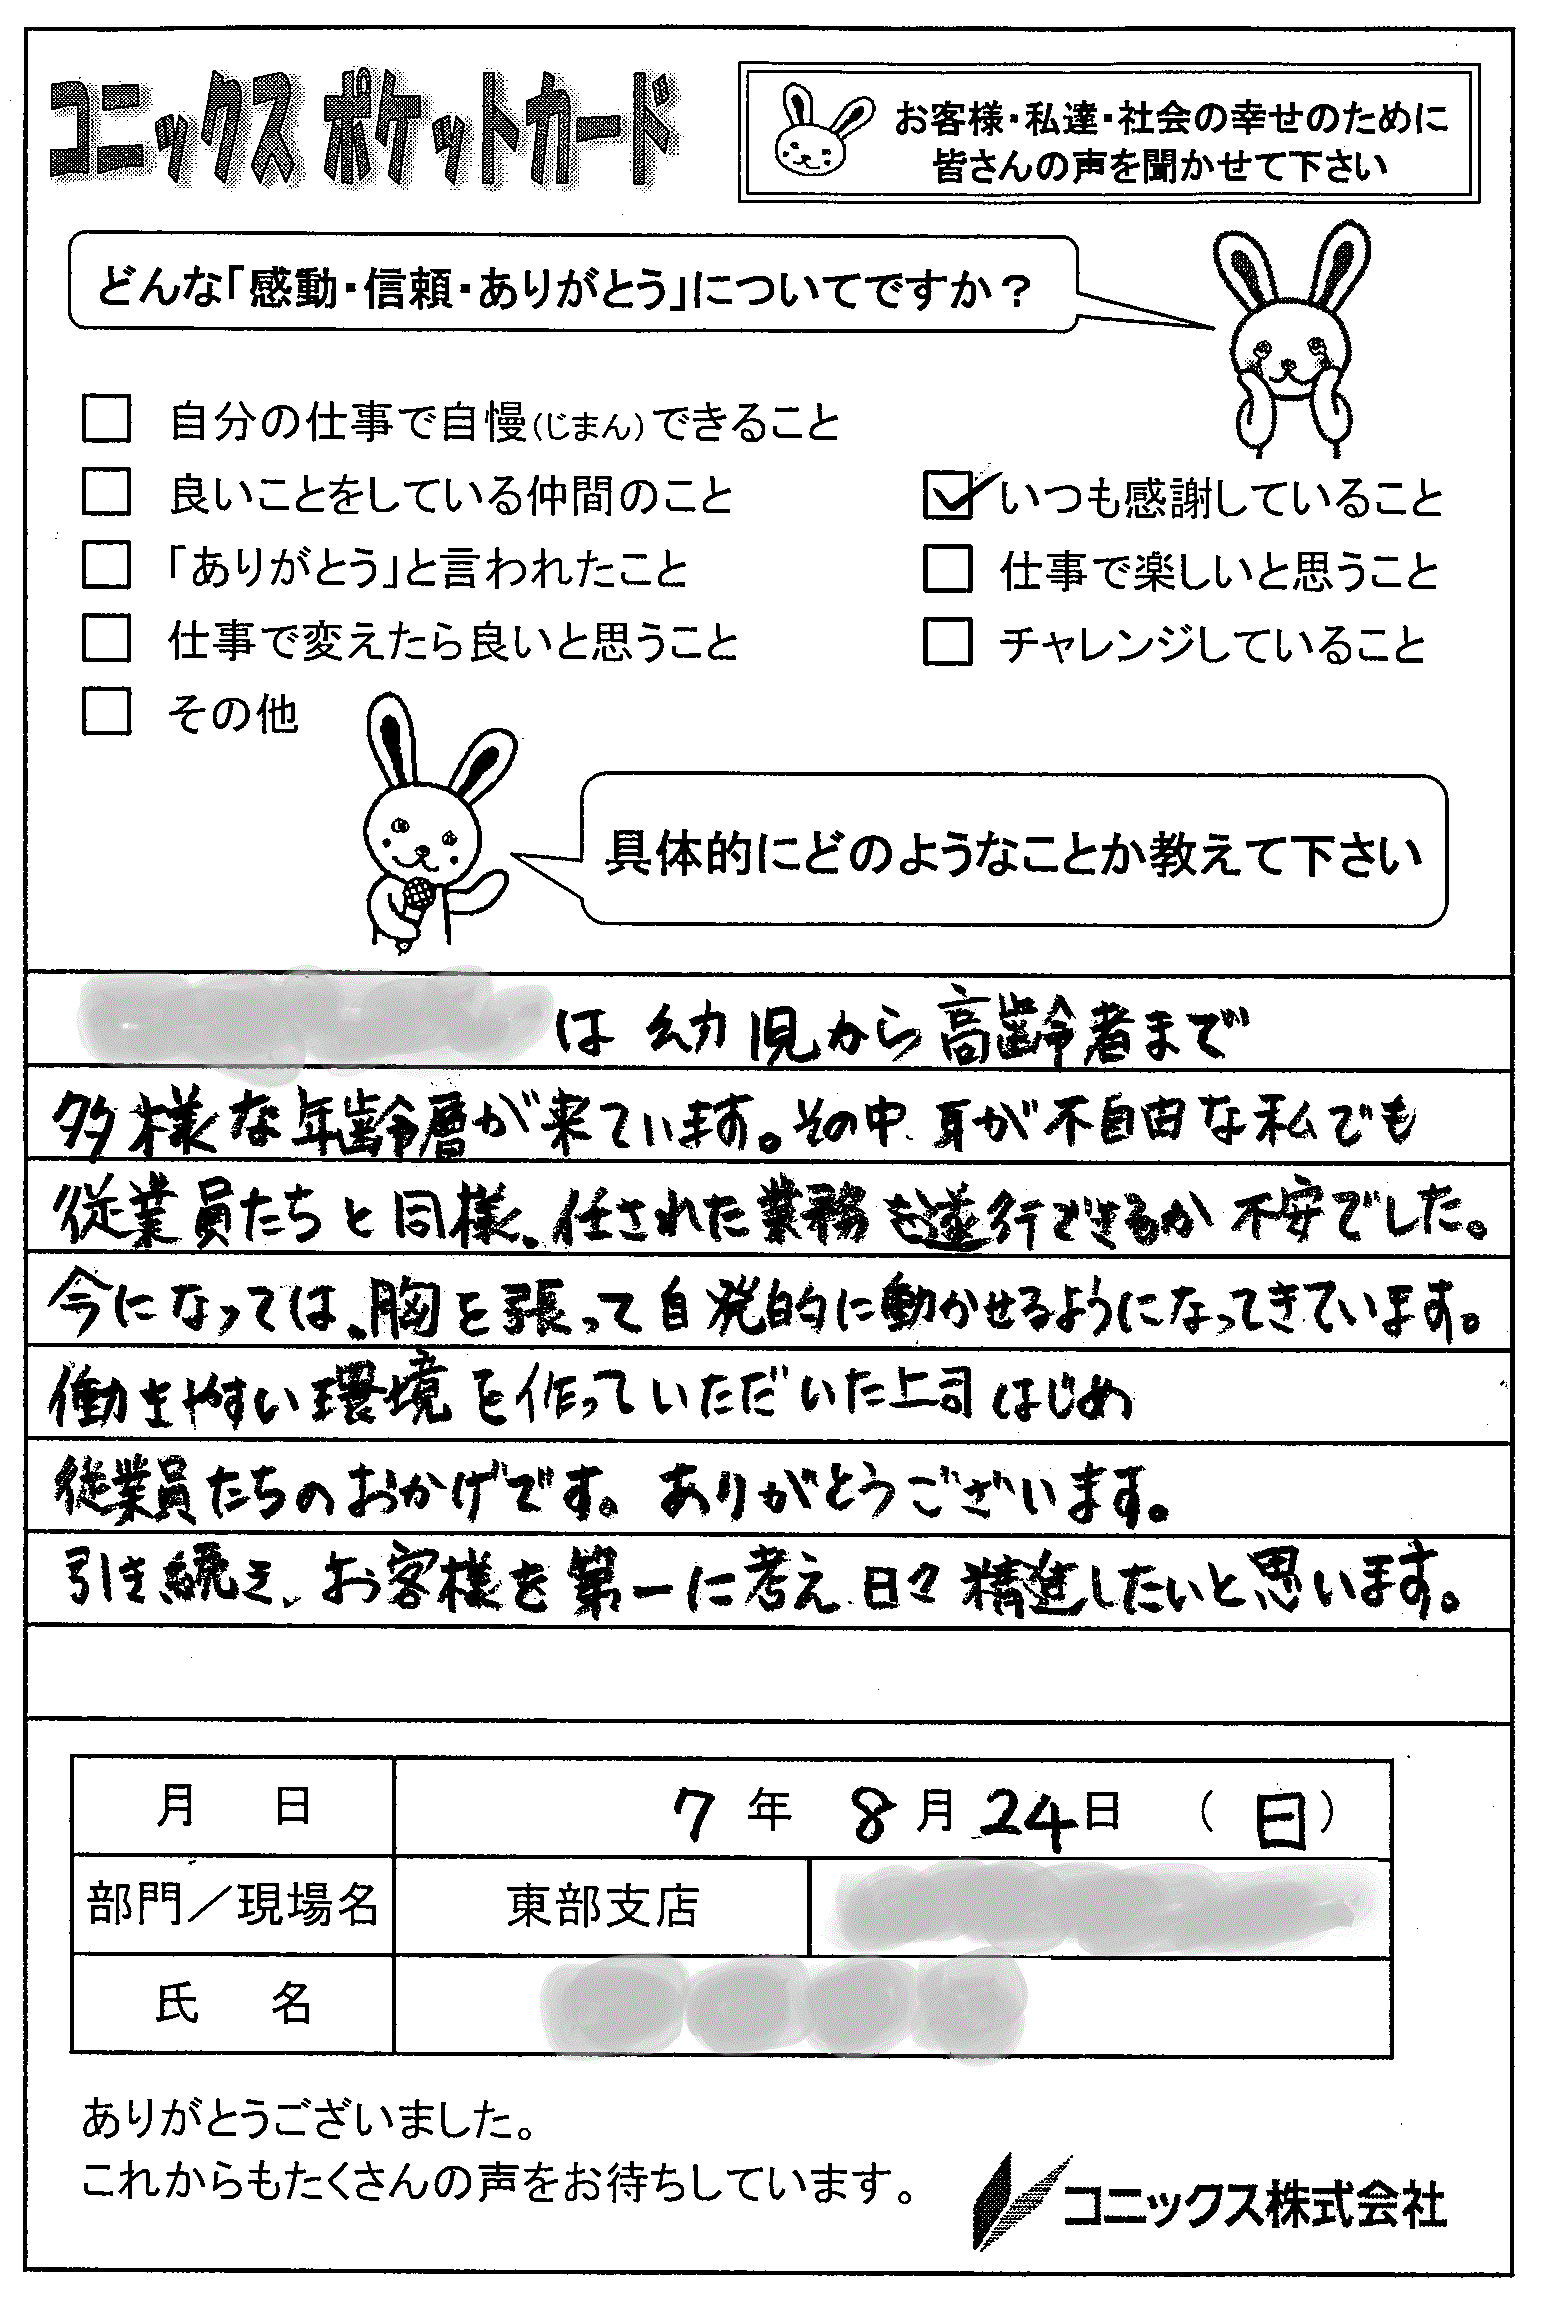 コニックス ポケットカード
お客様・私達・社会の幸せのために
皆さんの声を聞かせて下さい
どんな「感動・信頼・ありがとう」についてですか？
自分の仕事で自慢(じまん)できること
良いことをしている仲間のこと
いつも感謝していること
「ありがとう」と言われたこと
仕事で楽しいと思うこと
仕事で変えたら良いと思うこと
チャレンジしていること
その他
具体的にどのようなことか教えて下さい
は幼児から高齢者まで
多様な年齢層が来ています。その中、耳が不自由な私でも
従業員たちと同様、任された業務を遂行できるか不安でした。
今になっては、胸を張って自発的に動かせるようになってきています。
働きやすい環境を作っていただいた上司はじめ
従業員たちのおかげです。ありがとうございます。
引き続き、お客様を第一に考え、日々精進したいと思います。
月 日 7年 8月24日 （日）
部門／現場名 東部支店
氏 名
ありがとうございました。
これからもたくさんの声をお待ちしています。
コニックス株式会社